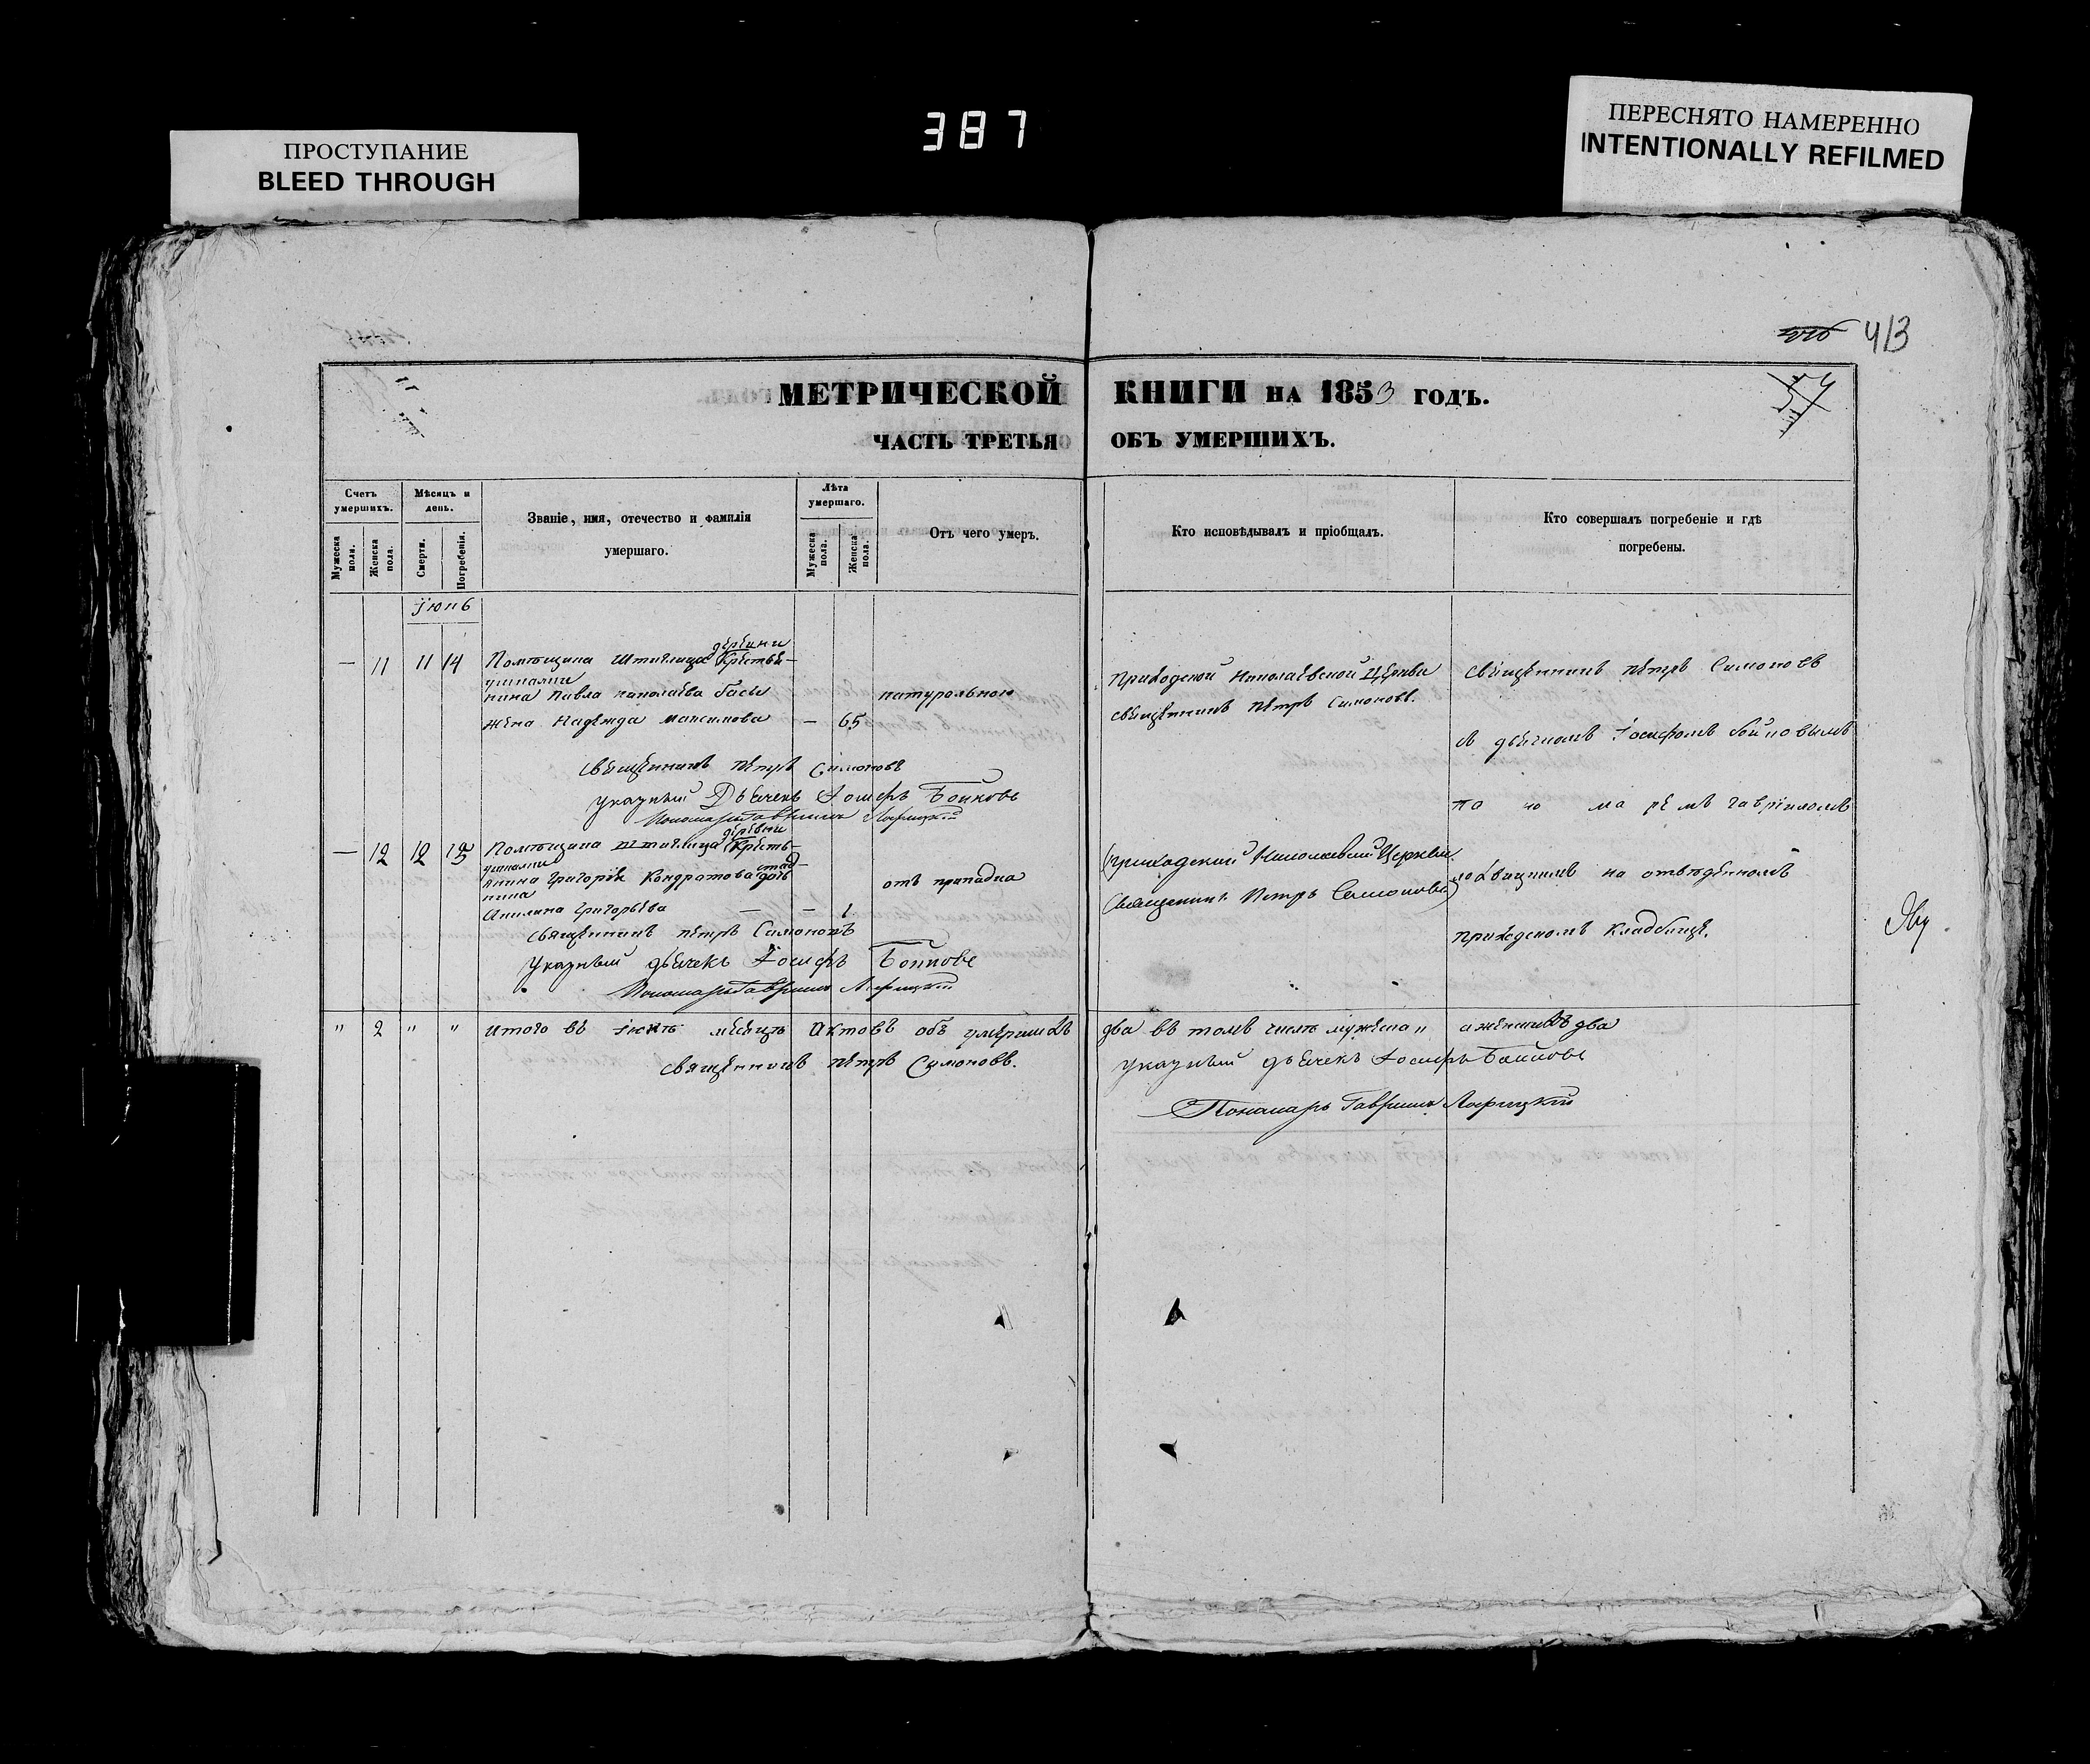 387
ПРОСТУПАНИЕ
BLEED THROUGH
ПЕРЕСНЯТО НАМЕРЕННО
INTENTIONALLY REFILMED
413
МЕТРИЧЕСКОЙ КНИГИ НА 1853 ГОДЪ.
ЧАСТЬ ТРЕТЬЯ ОБЪ УМЕРШИХЪ.
Счетъ умершихъ.
Мужеска пола.
Женска пола.
Мѣсяцъ и день.
Смерти.
Погребенія.
Званіе, имя, отечество и фамилія
умершаго.
Лѣта умершаго.
Мужеска пола.
Женска пола.
Отъ чего умеръ.
Кто исповѣдывалъ и пріобщалъ.
Кто совершалъ погребеніе и гдѣ
погребены.
Іюнь
— 11 11 14 Помѣщика Штиглица Крестья-
нина Павла николаева
жена Надежда максимова — 65
натуральною
Приходской Николаевской Церкви
священникъ Петръ Симоновъ.
священникъ Петръ Симоновъ
съ дьячкомъ Іосифомъ Бойковымъ
священникъ Петръ Симоновъ
указный Дьячекъ Іосифъ Бойковъ
Пономарь Гавріилъ
по но ма ре мъ гавріиломъ
деревни
— 12 12 15 Помѣщика Штиглица Кресть-
янина Григорія Кондратова дочь
Григорьева — — 1
отъ припадка
Приходской Николаевской Церкви
Священникъ Петръ Симоновъ
на отведенномъ
приходскомъ кладбищѣ.
священникъ петръ Симоновъ
Указный дьячекъ Іосифъ Бойковъ
Пономарь Гавріилъ
" 2 " " итого въ іюнѣ месяцѣ Актовъ объ умершихъ два въ томъ числѣ мужеска " а женскихъ два
священникъ петръ Симоновъ.
указный дьячекъ Іосифъ Бойковъ
Пономарь Гавріилъ